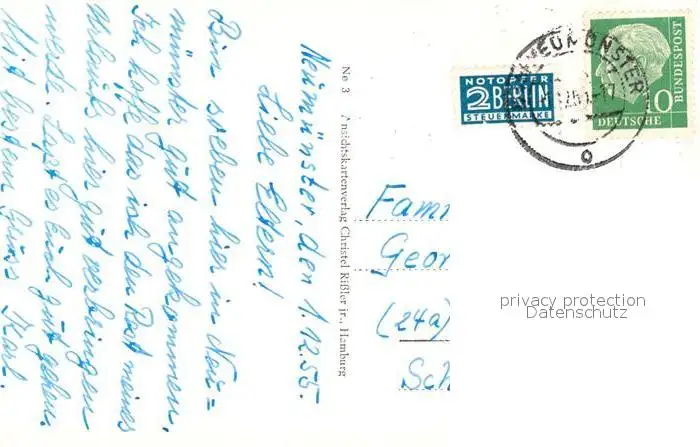 Neumünster, den 1.12.55.
Liebe Eltern!
Bin soeben hier in Neu=
münster gut angekommen.
Ich hoffe das ich den Rest meines
Urlaubs hier gut verbringen
werde. Lasst es Euch gut gehen.
Mit bestem Gruss Karl.
Ne 3 Ansichtskartenverlag Christel Rißler jr., Hamburg
NOTOPFER
2 BERLIN
STEUERMARKE
NEUMÜNSTER
10
DEUTSCHE
BUNDESPOST
Fam
Geor
(24a)
Sch
privacy protection
Datenschutz